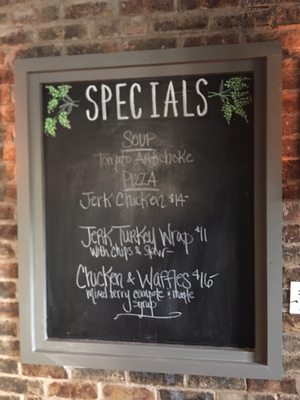 SPECIALS
SOUP
Tomato Artichoke
PIZZA
Jerk Chicken $14-
Jerk Turkey Wrap $11
with chips & slaw-
Chicken & Waffles $16-
Mixed berry compote + maple
syrup